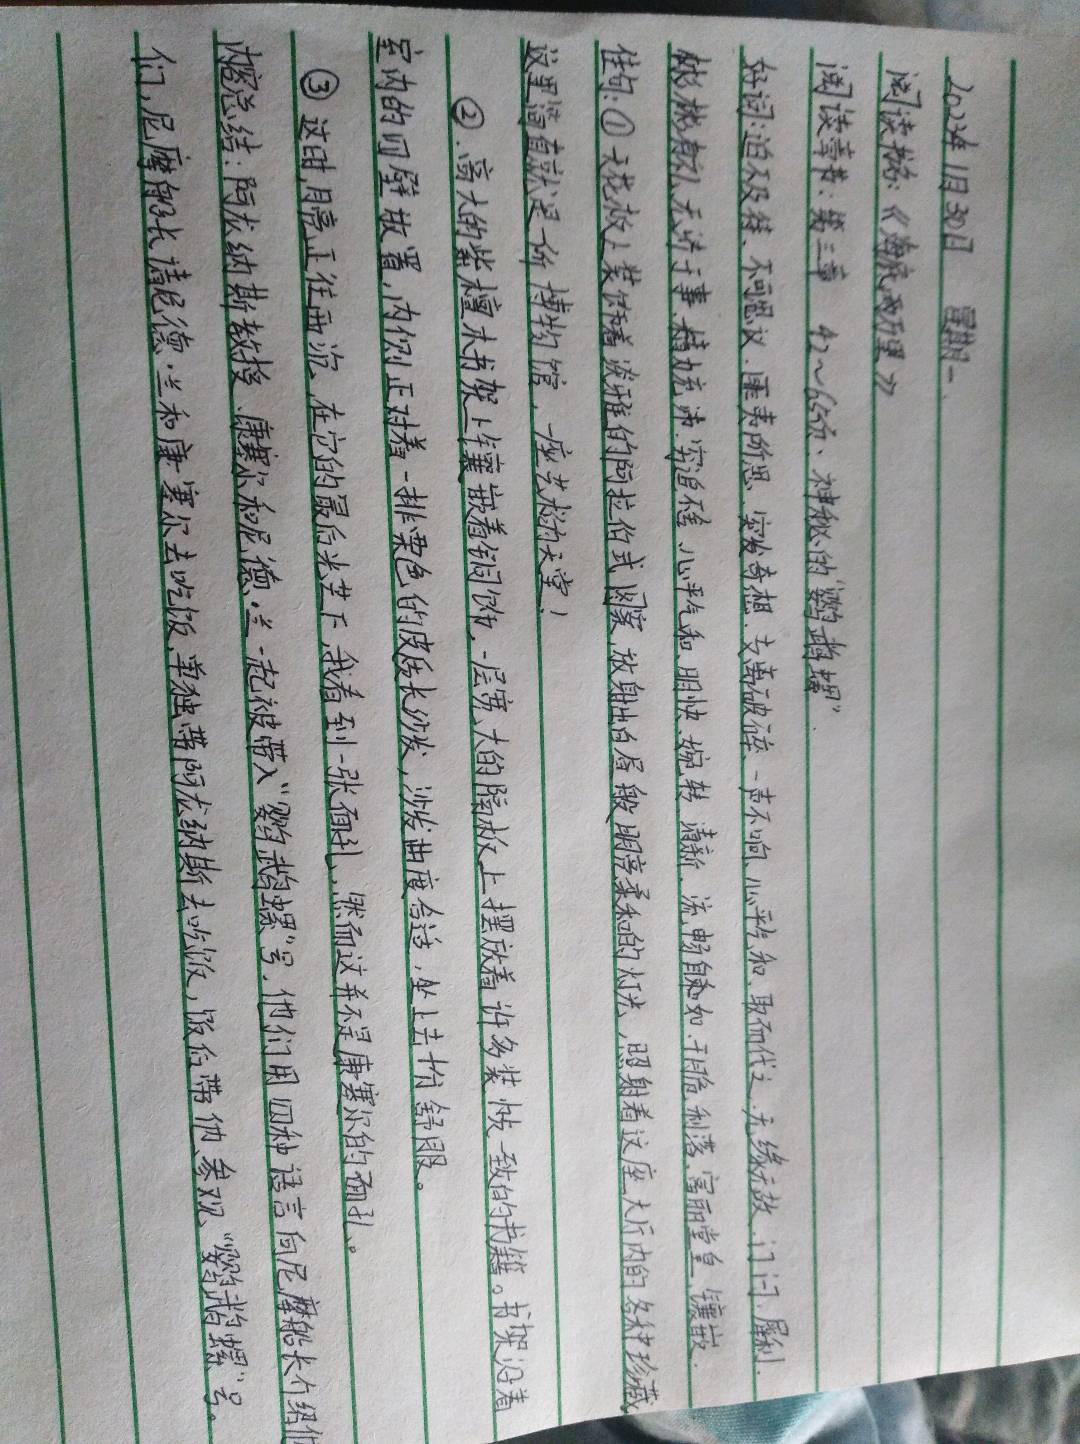 2023年1月30日 星期一.
阅读书名:《海底两万里》
阅读章节:第三章 42~65页、神秘的“鹦鹉螺”.
好词:迫不及待、不可思议、匪夷所思、突发奇想、支离破碎、一声不响、心平气和、取而代之、无缘无故、门闩、犀利.
彬彬有礼、无济于事、精力充沛、穷追不舍、心平气和、明快、婉转、清新、流畅自如、干脆利落、富丽堂皇、镶嵌.
佳句:①天花板上装饰着淡雅的阿拉伯式图案,放射出白昼般明亮柔和的灯光,照射着这座大厅内的各种珍藏
这里简直就是一所博物馆,一座艺术的天堂!
②.高大的紫檀木书架上镶嵌着铜饰,一层宽大的隔板上摆放着许多装帧一致的书籍。书架沿着
室内的四壁放置,内侧正对着一排栗色的皮质长沙发,沙发曲度合适,坐上去十分舒服。
③这时,月亮正往西沉,在它的最后光芒下,我看到一张面孔,然而这并不是康塞尔的面孔。
内容总结:阿龙纳斯教授、康塞尔和尼德·兰一起被带入“鹦鹉螺”号,他们用四种语言向尼摩船长介绍他
们,尼摩船长请尼德·兰和康塞尔去吃饭,单独带阿龙纳斯去吃饭,饭后带他参观“鹦鹉螺”号。